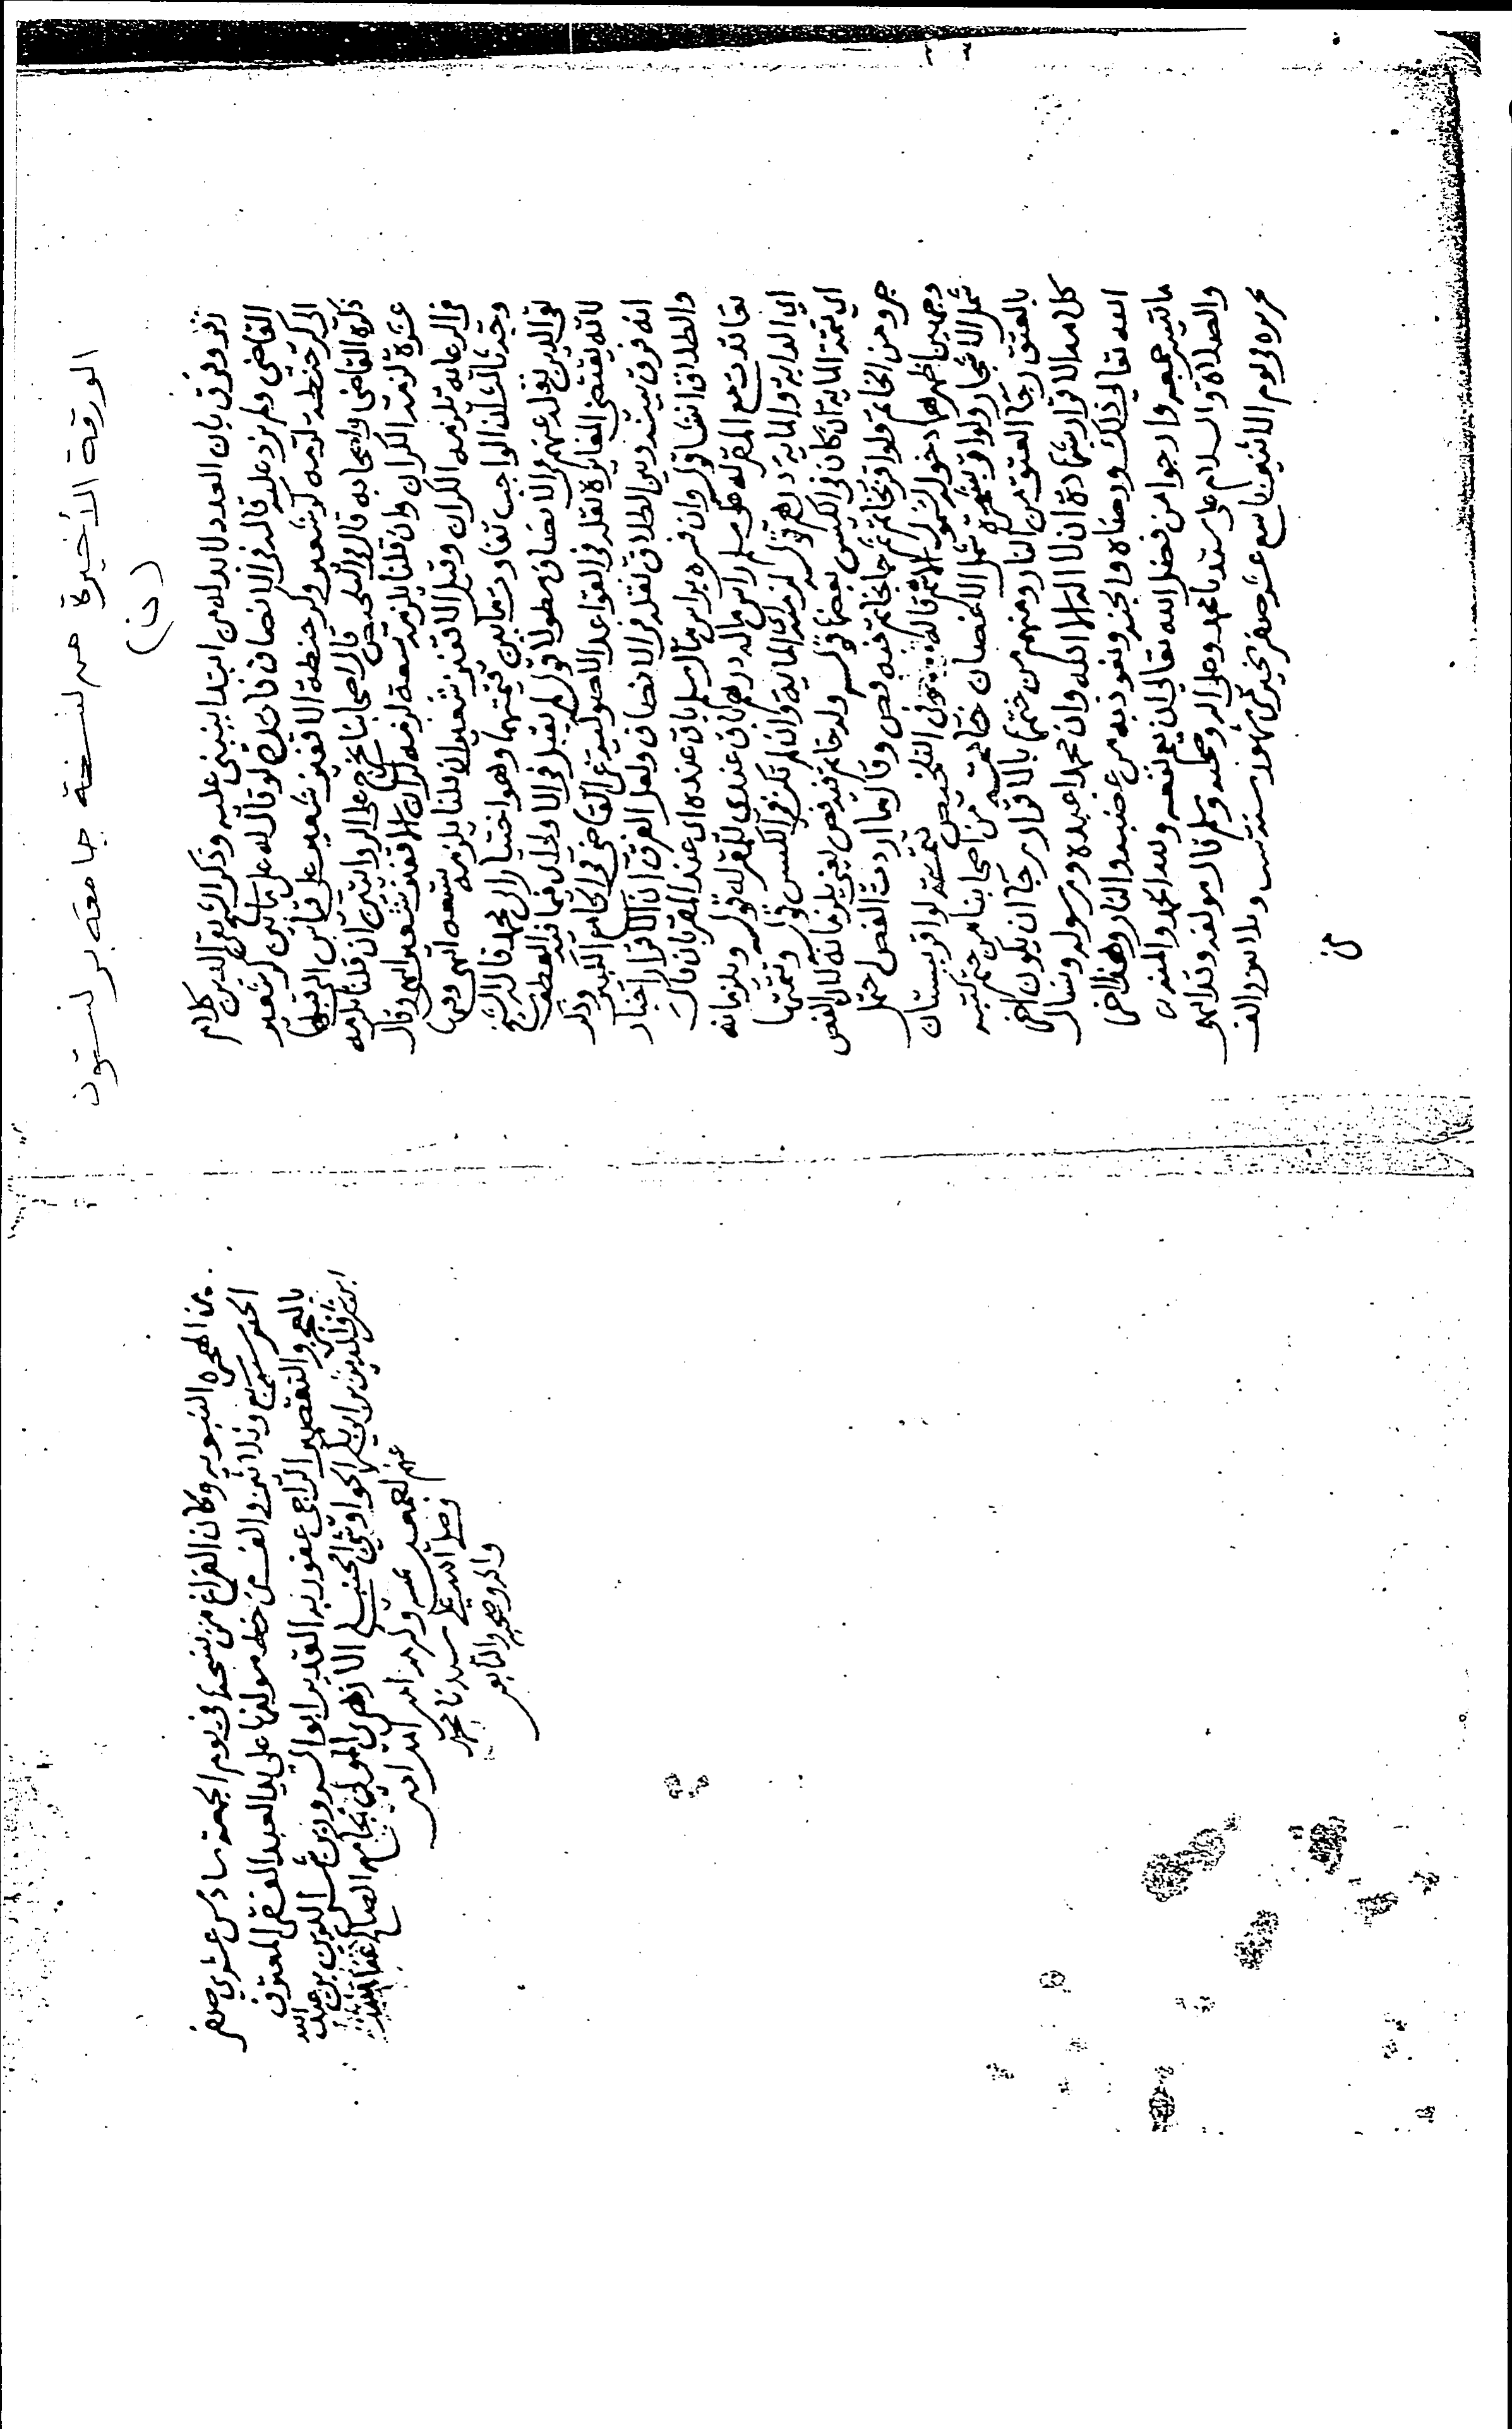 الورقة الأخيرة من نسخة جامعة برنستون
(ن)
زفر وفرق بان العدد لا بد له من ابتدا يبنى عليه وذكر الشيخ تقي الدين كلام
القاضي ولم يزد عليه قاله في الانصاف فائدة لو قال له علي ما بين كر شعير
الى كر حنطة لزمه كر شعير وكر حنطة الا قفيز شعير على قياس المسئلة
ذكره القاضي واصحابه قال في التلخيص قال اصحابنا يخرج على الروايتين ان قلنا يلزمه
عشرة لزمه الكران وان قلنا يلزمه تسعة لزمه كران الا قفيز شعير انتهى وقال
في الرعاية تلزمه الكران وقيل الا قفيز شعير ان قلنا يلزمه تسعة انتهى
وحيث قلنا الواجب تفاوت ما بين قيمتيهما وهو اختيار ابي محمد قال الشيخ
تقي الدين نقله عنهم في الانصاف مطولا قوله لم يقبل في الاولى اي فيما فيه العطف
لانه يقتضي المغايرة نقله في القواعد الاصولية عن القاضي في الجامع الكبير وذكر
انه فرق بينه وبين الطلاق نقله في الانصاف ولعل الفرق ان الاقرار اخبار
والطلاق انشا قوله وان فسره براس مال سلم باق عنده اي عند المقر بان قال
تعاقدت مع المقر له على سلم راس ماله درهم باق عندي للمقر له قوله ويلزمانه
اي الدابة والماية درهم قوله لزمته اي الماية وان لم تكن في الكيس قوله وتتمتها
اي تتمة الماية ان كان في الكيس بعضها قوله وله خاتم فيه فص يعني يلزمانه لان الفص
جزو من الخاتم ولو اقر بخاتم ثم جا بخاتم فيه فص وقال ما اردت الفص احتمل
وجهين اظهرهما دخوله لشمول الاسم قاله في التلخيص تتمة لو اقر ببستان
شمل الاشجار ولو اقر بشجرة شمل الاغصان خاتمة من اصحابنا من ختم كتبه
بالعتق رجا العتق من النار ومنهم من ختمها بالاقرار رجا ان يكون اخر
كلامه الاقرار بشهادة ان لا اله الا الله وان محمدا عبده ورسوله ونسال
الله تعالى ذلك ورضاه والجنة ونعوذ به من غضبه والنار وهذا اخر
ما تيسر جمعه وارجوا من فضل الله تعالى ان يعم نفعه ولله الحمد والمنة
والصلاة والسلام على سيدنا محمد وعلى اله وصحبه وسلم قال مولفه وقد انتهى
تحريره في يوم الاثنين تاسع عشر صفر الخير من شهور سنة ست وثلاثين والف
من الهجرة النبوية وكان الفراغ من نسخها في يوم الجمعة سادس عشري صفر
الخير سنة سبع وثلاثين والف من خط مولفها على يد العبد الفقير المعترف
بالعجز والتقصير الراجي عفو ربه القدير ابو السرور بن شمس الدين بن عبد الله
ابن شرف الدين بن ابي بكر الحواوشي الحنبلي الازهري المولى بجامع الصالح
وصلى الله على سيدنا محمد
واله وصحبه والتابعين